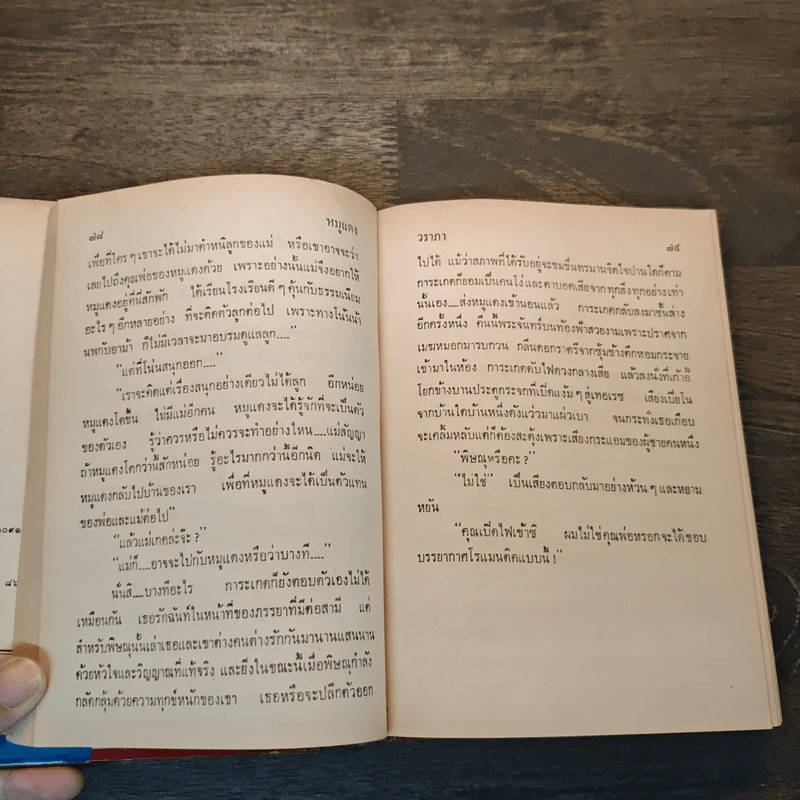 ๐๙๑
๘๖
๗๘
หมูแดง
เพื่อที่ใคร ๆ เขาจะได้ไม่มาตำหนิลูกของแม่ หรือเขาอาจจะว่า
เลยไปถึงคุณพ่อของหมูแดงด้วย เพราะอย่างนั้นแม่จึงอยากให้
หมูแดงอยู่ที่นี่สักพัก ได้เรียนโรงเรียนดี ๆ คุ้นกับธรรมเนียม
อะไร ๆ อีกหลายอย่าง ที่จะติดตัวลูกต่อไป เพราะทางโน้นน้า
นพกับอาม้า ก็ไม่มีเวลาจะมาอบรมดูแลลูก....”
“แต่ที่โน่นสนุกออก....”
“เราจะคิดแต่เรื่องสนุกอย่างเดียวไม่ได้ลูก อีกหน่อย
หมูแดงโตขึ้น ไม่มีแม่อีกคน หมูแดงจะได้รู้จักที่จะเป็นตัว
ของตัวเอง รู้ว่าควรหรือไม่ควรจะทำอย่างไหน....แม่สัญญา
ถ้าหมูแดงโตกว่านี้สักหน่อย รู้อะไรมากกว่านี้อีกนิด แม่จะให้
หมูแดงกลับไปบ้านของเรา เพื่อที่หมูแดงจะได้เป็นตัวแทน
ของพ่อและแม่ต่อไป”
“แล้วแม่เกดล่ะจ๊ะ ?”
“แม่ก็....อาจจะไปกับหมูแดงหรือว่าบางที....”
นั่นสิ....บางทีอะไร การะเกดก็ยังตอบตัวเองไม่ได้
เหมือนกัน เธอรักฉันท์ในหน้าที่ของภรรยาที่มีต่อสามี แต่
สำหรับพิษณุนั้นเล่าเธอและเขาต่างคนต่างรักกันมานานแสนนาน
ด้วยหัวใจและวิญญาณที่แท้จริง และยิ่งในขณะนี้เมื่อพิษณุกำลัง
กลัดกลุ้มด้วยความทุกข์หนักของเขา เธอหรือจะปลีกตัวออก
วราภา
๗๙
ไปได้ แม้ว่าสภาพที่ได้รับอยู่จะขมขื่นทรมานจิตใจปานใดก็ตาม
การะเกดก็ยอมเป็นคนโง่ และตาบอดเสียจากทุกสิ่งทุกอย่างเท่า
นั้นเอง....ส่งหมูแดงเข้านอนแล้ว การะเกดกลับลงมาชั้นล่าง
อีกครั้งหนึ่ง คืนนี้พระจันทร์บนท้องฟ้าสวยงามเพราะปราศจาก
เมฆหมอกมารบกวน กลิ่นดอกราตรีจากซุ้มข้างตึกหอมกระจาย
เข้ามาในห้อง การะเกดดับไฟดวงกลางเสีย แล้วลงนั่งที่เก้าอี้
โยกข้างบานประตูกระจกที่เปิดแง้ม ๆ สู่เทอเรซ เสียงเปียโน
จากบ้านใดบ้านหนึ่งดังแว่วมาแผ่วเบา จนกระทั่งเธอเกือบ
จะเคลิ้มหลับแต่ก็ต้องสะดุ้งเพราะเสียงกระแอมของผู้ชายคนหนึ่ง
“พิษณุหรือคะ ?”
“ไม่ใช่” เป็นเสียงตอบกลับมาอย่างห้วน ๆ และหยาม
หยัน
“คุณเปิดไฟเข้าซิ ผมไม่ใช่คุณพ่อหรอกจะได้ชอบ
บรรยากาศโรแมนติคแบบนี้ !”